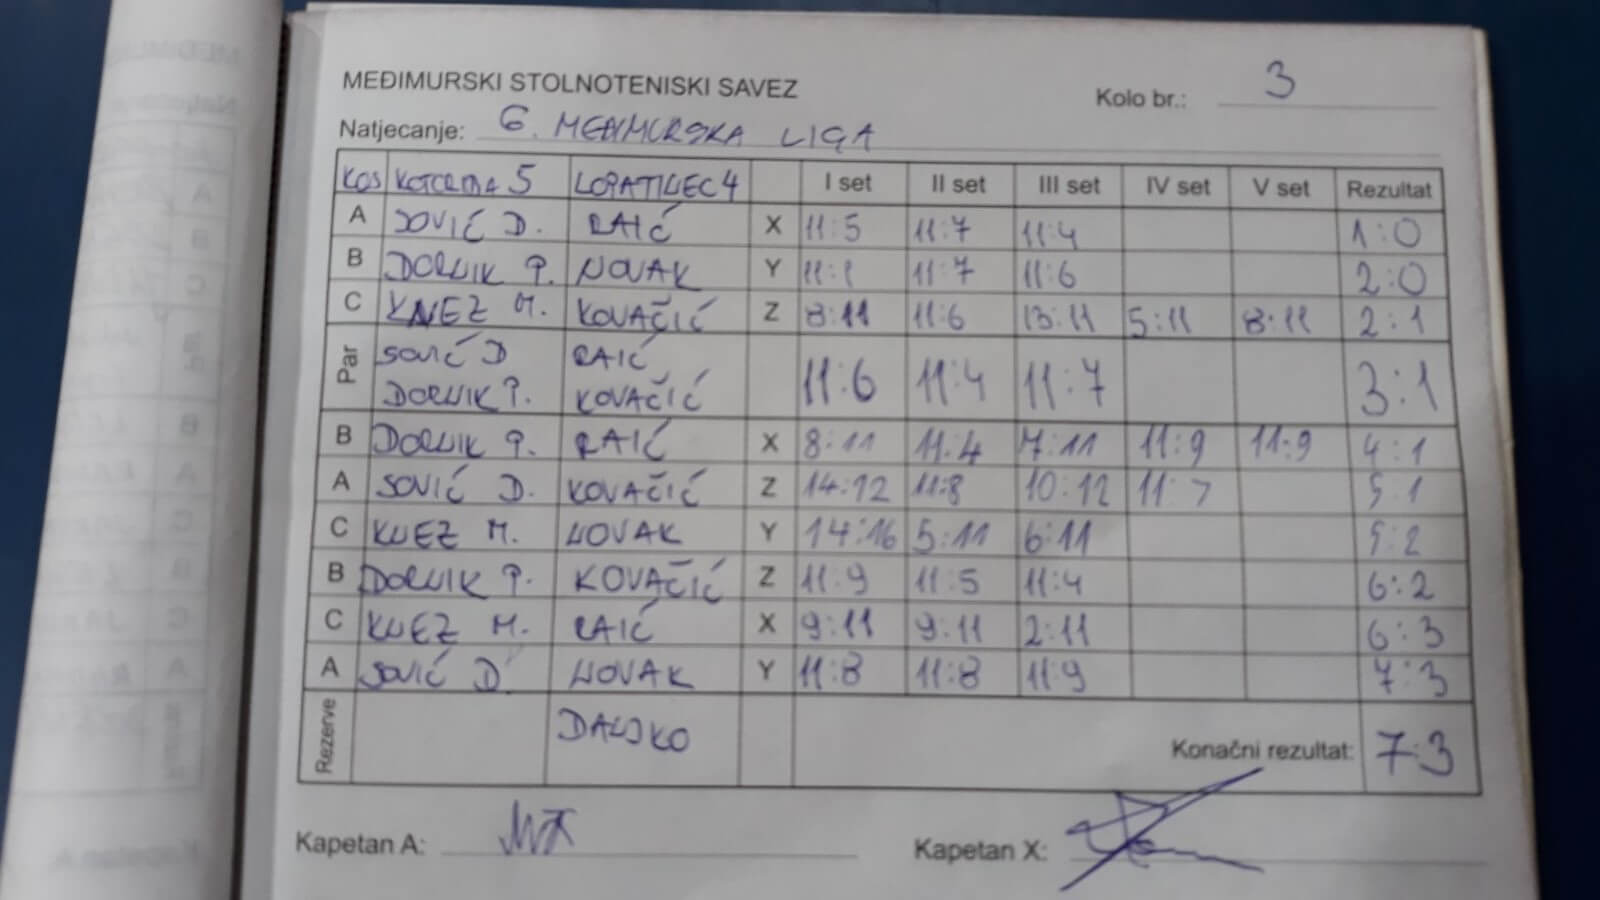 MEĐIMURSKI STOLNOTENISKI SAVEZ
Kolo br.: 3
Natjecanje: 6. MEĐIMURSKA LIGA
KOTORIBA 5 LOPATINEC 4 I set II set III set IV set V set Rezultat
A SOVIĆ D. RAIĆ X 11:5 11:7 11:4 1:0
B DORNIK P. NOVAK Y 11:1 11:7 11:6 2:0
C KNEZ M. KOVAČIĆ Z 8:11 11:6 13:11 5:11 8:11 2:1
Par SOVIĆ D RAIĆ 11:6 11:4 11:7 3:1
DORNIK P. KOVAČIĆ
B DORNIK P. RAIĆ X 8:11 11:4 7:11 11:9 11:9 4:1
A SOVIĆ D. KOVAČIĆ Z 14:12 11:8 10:12 11:7 5:1
C KNEZ M. NOVAK Y 14:16 5:11 6:11 5:2
B DORNIK P. KOVAČIĆ Z 11:9 11:5 11:4 6:2
C KNEZ M. RAIĆ X 9:11 9:11 2:11 6:3
A SOVIĆ D NOVAK Y 11:8 11:8 11:9 7:3
Rezerve DALJKO Konačni rezultat: 7:3
Kapetan A: Kapetan X: